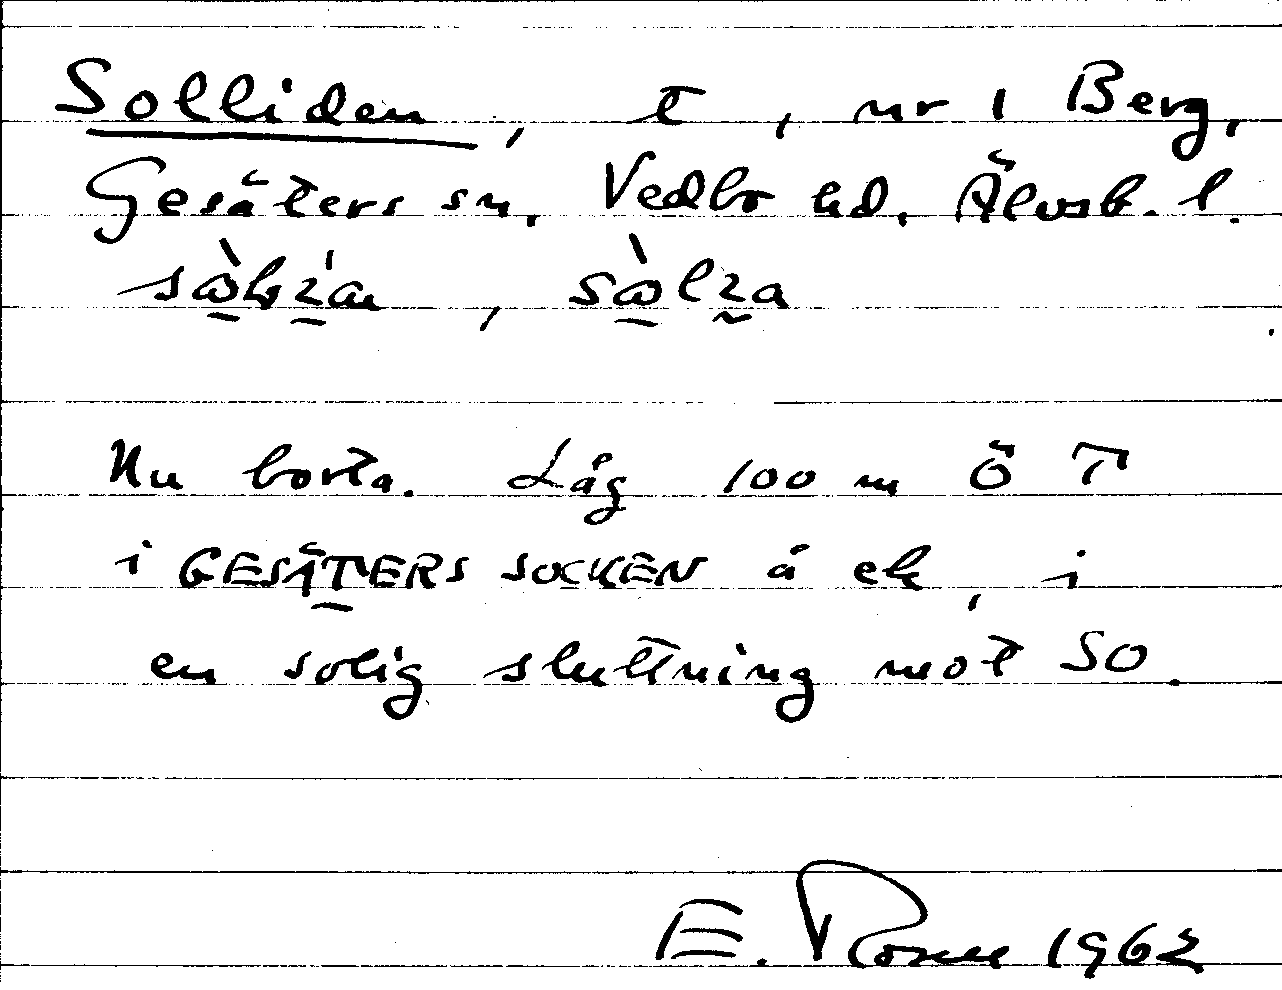 Solliden, t, nr 1 Berg,
Gesäters sn, Vedbo hd, Älvsb. l.
Nu borta. Låg 100 m Ö T
i GESÄTERS SOCKEN å ek, i
en solig sluttning mot SO.
E. 1962